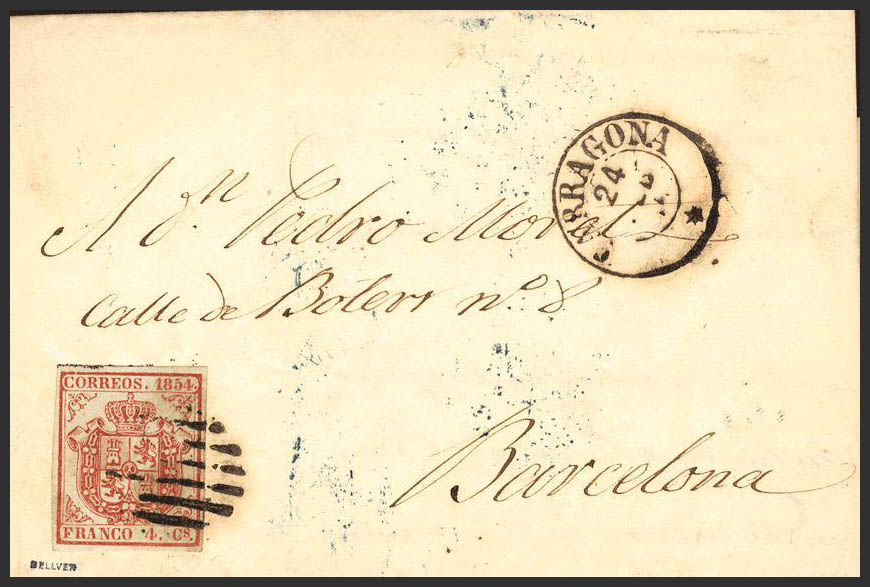 TARRAGONA
24
A Dn Pedro Moral
Calle de Boters nº 8
Barcelona
CORREOS. 1854.
FRANCO 4. Cs.
BELLVER